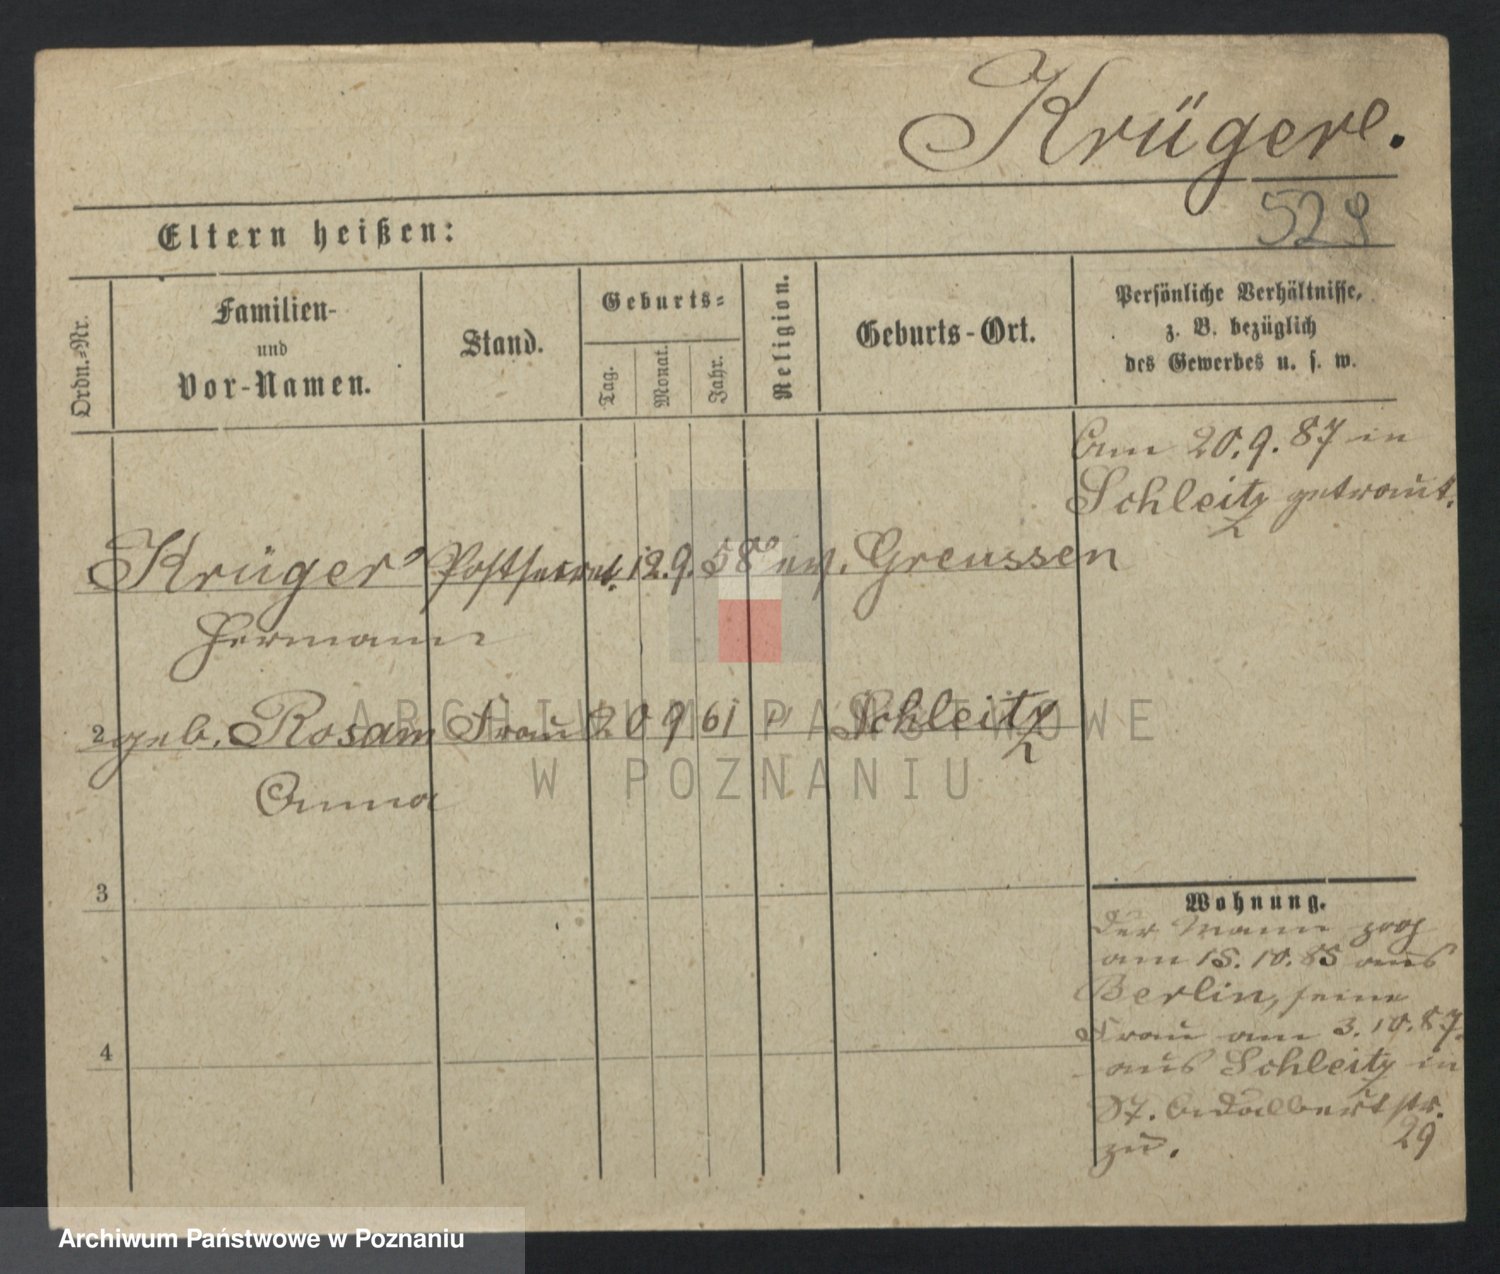 Krüger.
529
Eltern heißen:
Ordn.-Nr.
Familien-
und
Vor-Namen.
Stand.
Geburts-
Tag.
Monat.
Jahr.
Religion.
Geburts-Ort.
Persönliche Verhältnisse,
z. B. bezüglich
des Gewerbes u. s. w.
Am 20.9.87 in
Schleitz getraut.
Krüger Postsecret. 12.9.58 ev. Greussen
Hermann
2 geb. Rosam Frau 20 9 61 " Schleitz
Anna
3
4
Wohnung.
Der Mann zog
am 15.10.85 aus
Berlin, seine
Frau am 3.10.87.
aus Schleitz in
St. Adalbertstr.
29
zu.
ARCHIWUM PAŃSTWOWE
W POZNANIU
Archiwum Państwowe w Poznaniu